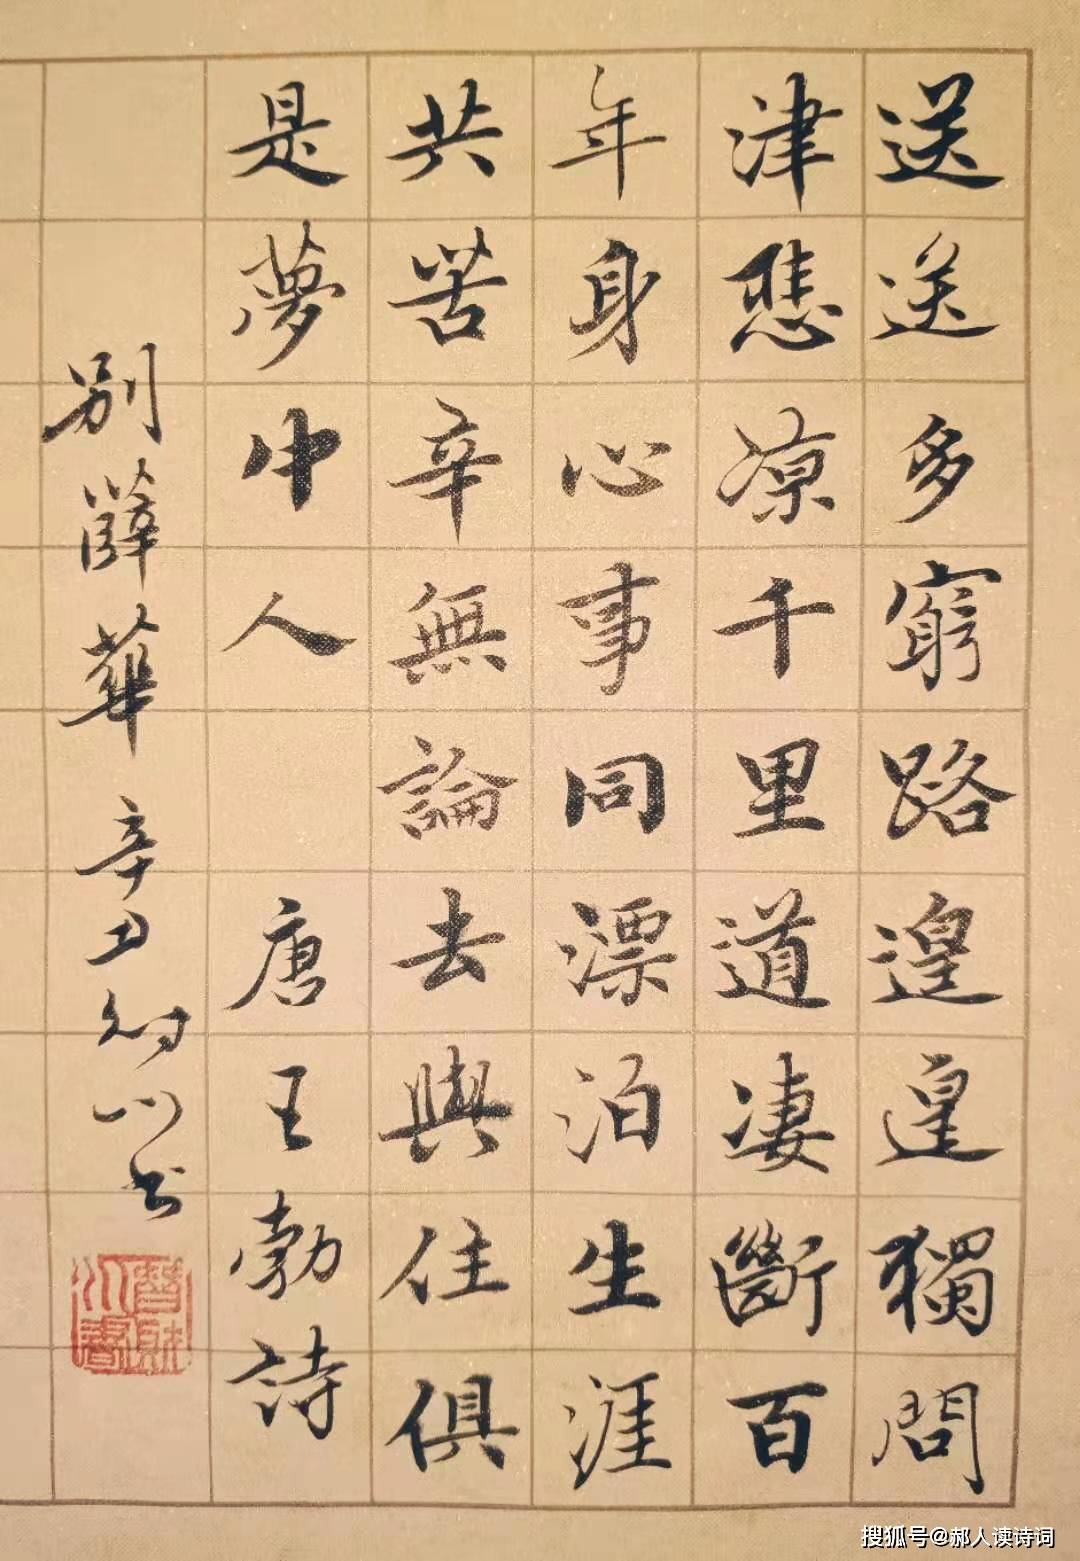 送送多窮路遑遑獨問
津悲凉千里道凄斷百
年身心事同漂泊生涯
共苦辛無論去與住俱
是夢中人 唐王勃詩
别薛華 辛丑 川书
搜狐号@郝人读诗词